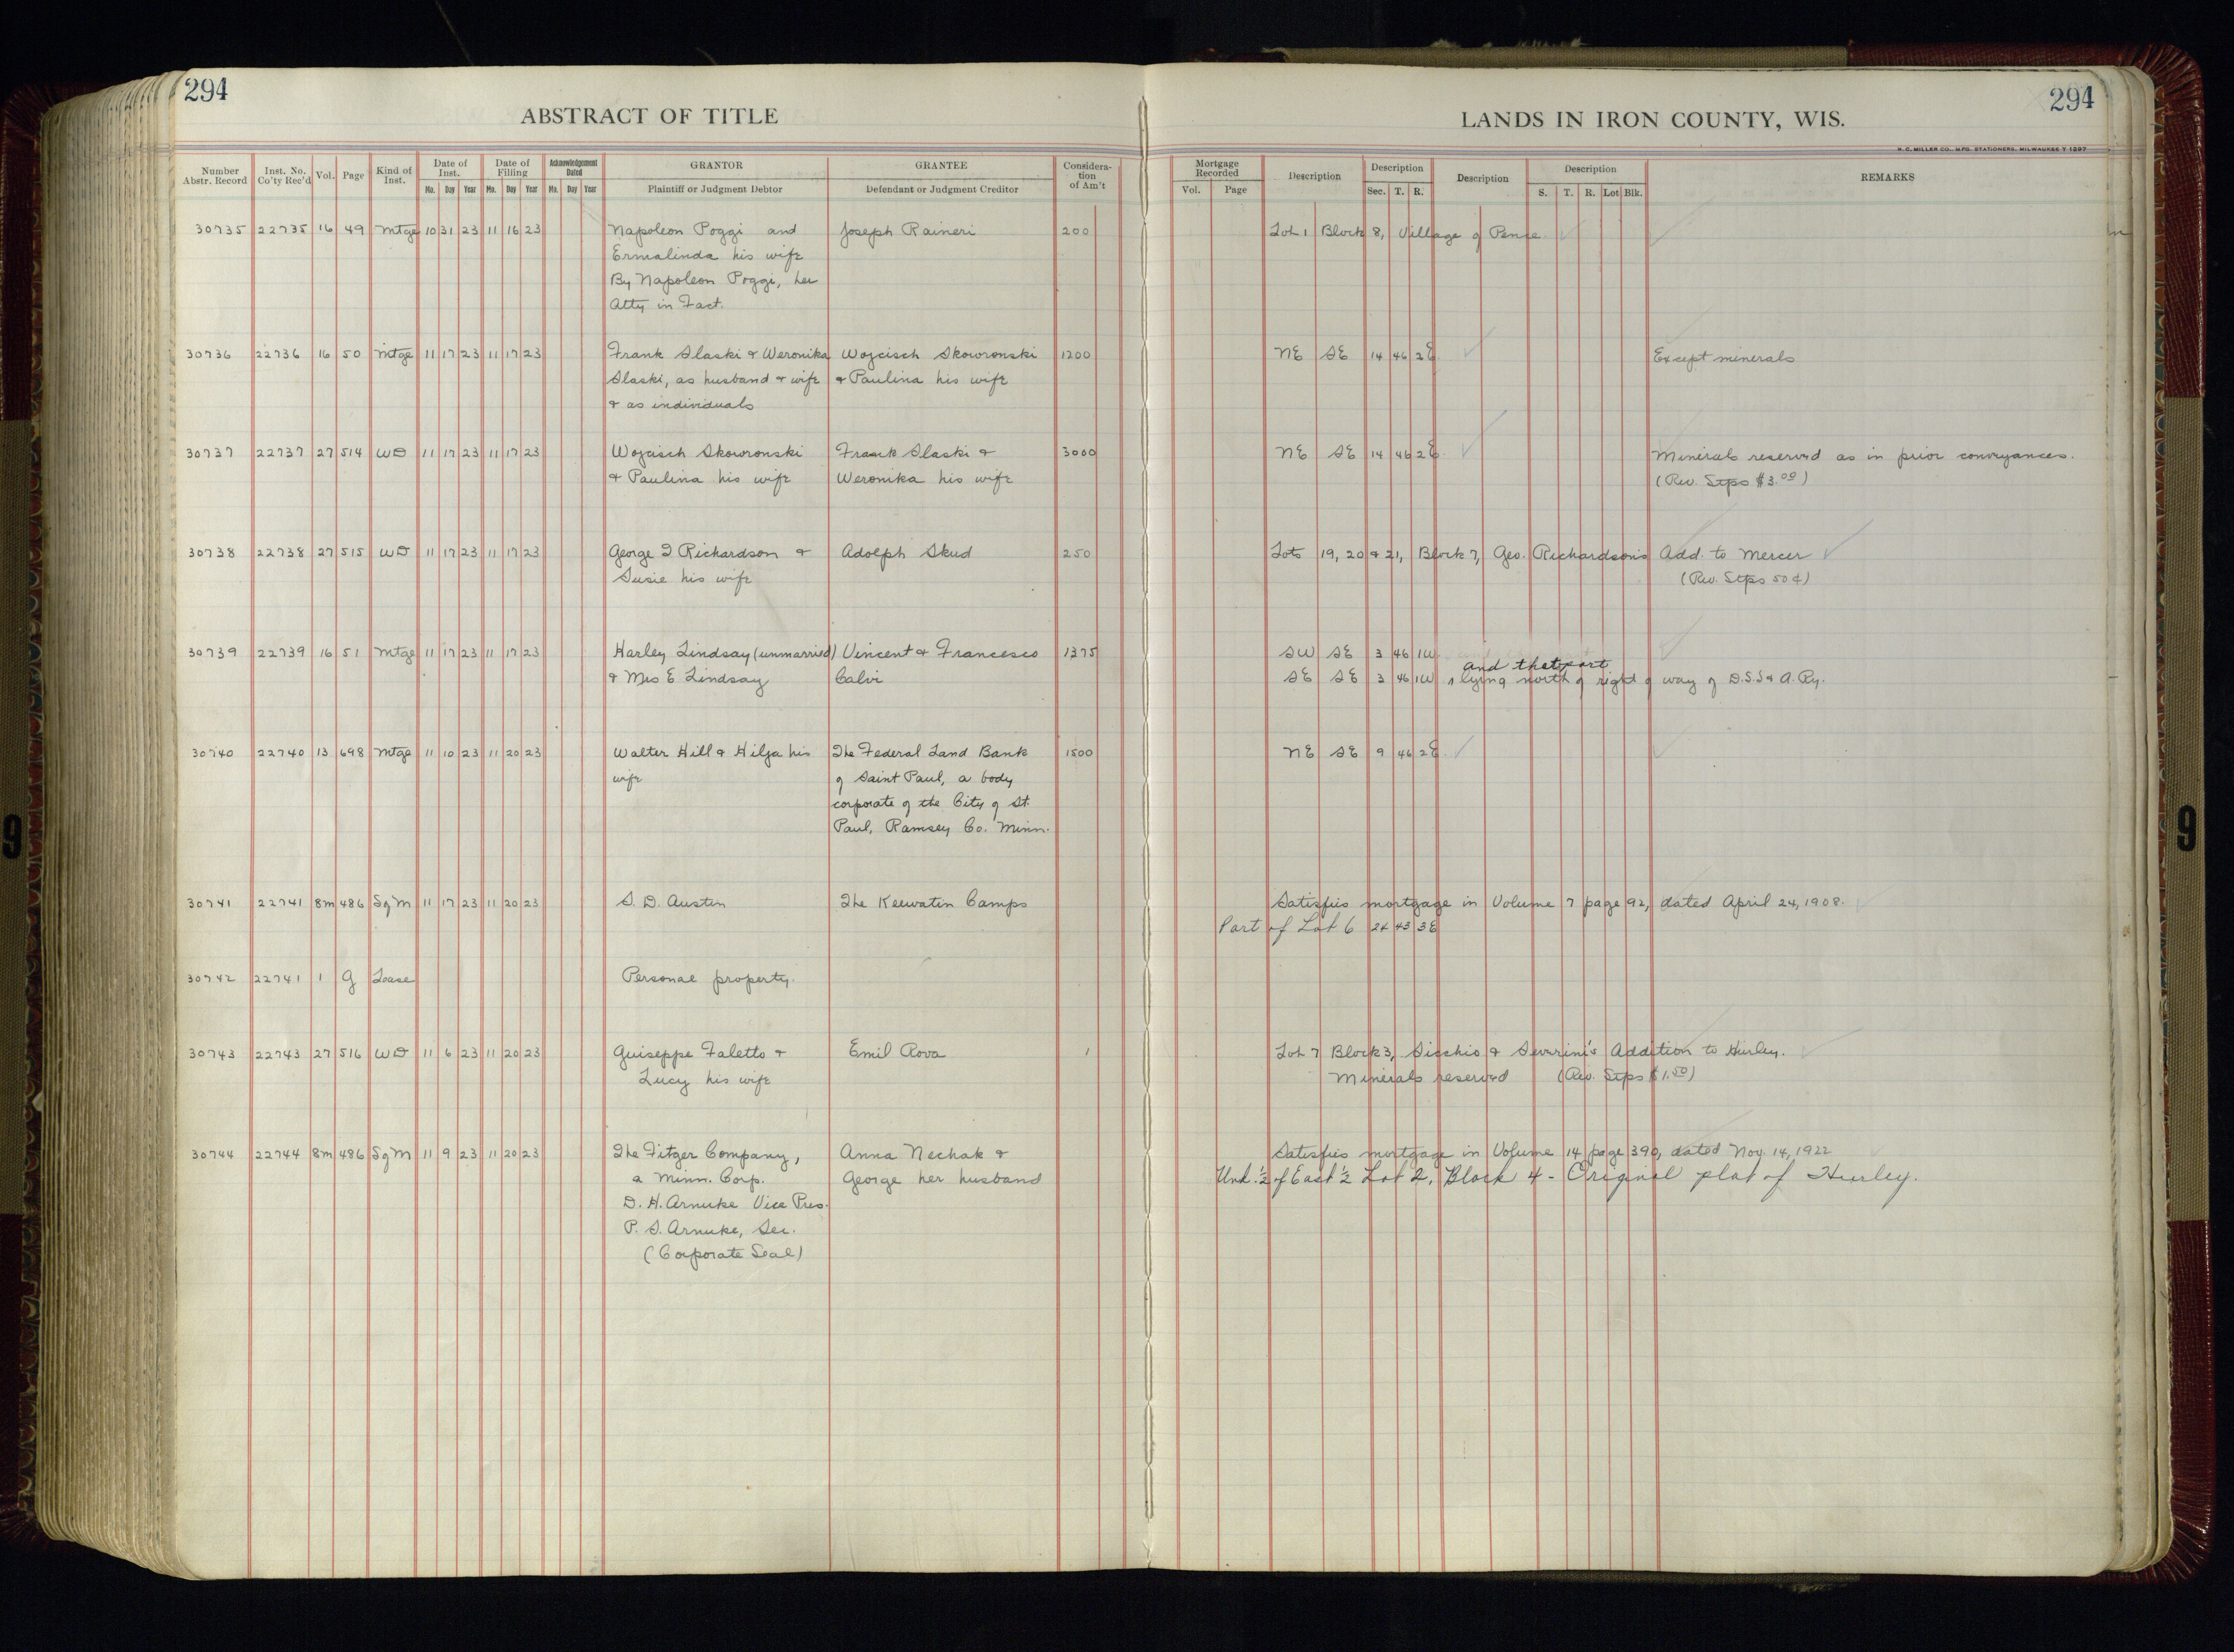 294
ABSTRACT OF TITLE
LANDS IN IRON COUNTY, WIS.
294
H. C. MILLER CO. MFG. STATIONERS, MILWAUKEE
Number Abstr. Record | Inst. No. Co'ty Rec'd | Vol. | Page | Kind of Inst. | Date of Inst. Mo. Day Year | Date of Filing Mo. Day Year | Acknowledgement Dated Mo. Day Year | GRANTOR Plaintiff or Judgment Debtor | GRANTEE Defendant or Judgment Creditor | Considera-tion of Am't | Mortgage Recorded Vol. Page | Description | Description Sec. T. R. | Description | Description S. T. R. Lot Blk. | REMARKS
30735 22735 16 49 Mtge 10 31 23 11 16 23 Napoleon Poggi and Joseph Raineri 200 Lot 1 Block 8, Village of Pence
Ermalinda his wife
By Napoleon Poggi, her
Atty in Fact.
30736 22736 16 50 Mtge 11 17 23 11 17 23 Frank Slaski & Weronika Wojcisch Skowronski 1200 NE SE 14 46 2E Except minerals
Slaski, as husband & wife & Paulina his wife
& as individuals
30737 22737 27 514 WD 11 17 23 11 17 23 Wojcisch Skowronski Frank Slaski & 3000 NE SE 14 46 2E Minerals reserved as in prior conveyances.
& Paulina his wife Weronika his wife (Rev. Stps $3.00)
30738 22738 27 515 WD 11 17 23 11 17 23 George I Richardson & Adolph Skud 250 Lots 19, 20 & 21, Block 7, Geo. Richardson's Add. to Mercer
Susie his wife (Rev. Stps 50¢)
30739 22739 16 51 Mtge 11 17 23 11 17 23 Harley Lindsay (unmarried) Vincent & Francesco 1375 SW SE 3 46 1W
and that part
& Mrs E Lindsay Calvi SE SE 3 46 1W lying north of right of way of D.S.S & A. Ry.
30740 22740 13 698 Mtge 11 10 23 11 20 23 Walter Hill & Hilja his The Federal Land Bank 1500 NE SE 9 46 2E
wife of Saint Paul, a body
corporate of the City of St.
Paul, Ramsey Co. Minn.
30741 22741 8m 486 SgM 11 17 23 11 20 23 S. D. Austin The Keewatin Camps Satisfies mortgage in Volume 7 page 92, dated April 24, 1908.
Part of Lot 6 24 43 3E
30742 22741 1 g Lease Personal property.
30743 22743 27 516 WD 11 6 23 11 20 23 Guiseppe Faletto & Emil Rova 1 Lot 7 Block 3, Sicchio & Severini's Addition to Hurley.
Lucy his wife Minerals reserved (Rev. Stps $1.50)
30744 22744 8m 486 SgM 11 9 23 11 20 23 The Fitger Company, Anna Nechak & Satisfies mortgage in Volume 14 page 390, dated Nov. 14, 1922
a Minn. Corp. George her husband Und. ½ of East ½ Lot 2, Block 4 - Original plat of Hurley.
D. H. Arnuke Vice Pres.
P. S. Arnuke, Sec.
(Corporate Seal)
9
9